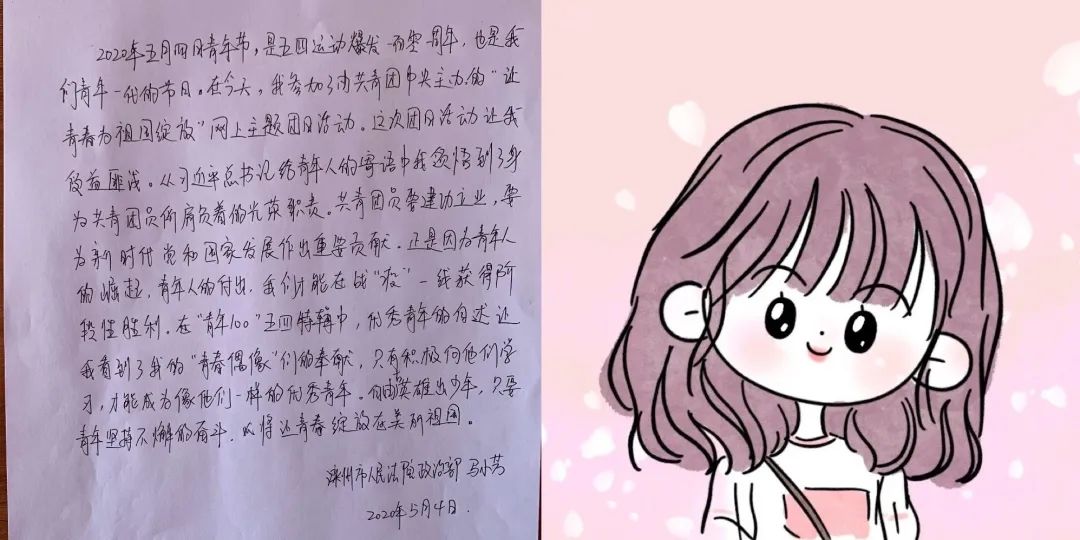 2020年五月四日青年节，是五四运动爆发一百零一周年，也是我
们青年一代的节日。在今天，我参加了由共青团中央主办的“让
青春为祖国绽放”网上主题团日活动。这次团日活动让我
受益匪浅。从习近平总书记给青年人的寄语中我领悟到了身
为共青团员所肩负着的光荣职责。共青团员要建功立业，要
为新时代党和国家发展作出重要贡献。正是因为青年人
的崛起，青年人的付出，我们才能在战“疫”一线获得阶
段性胜利。在“青年100”五四特辑中，优秀青年的自述让
我看到了我的“青春偶像”们的奉献，只有积极向他们学
习，才能成为像他们一样的优秀青年。自古英雄出少年，只要
青年坚持不懈的奋斗，必将让青春绽放在美丽祖国。
滦州市人民法院政治部 马小芳
2020年5月4日.